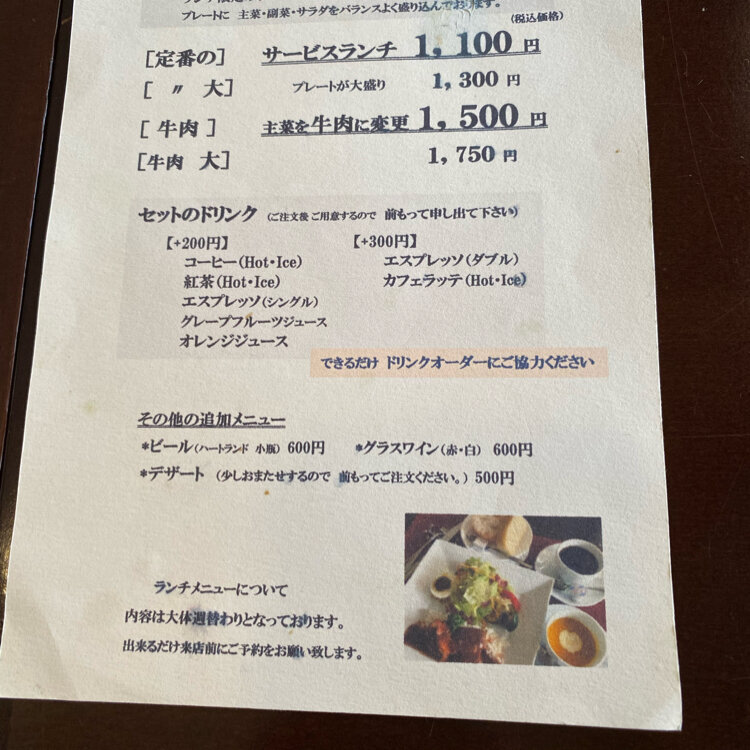 プレートに 主菜・副菜・サラダをバランスよく盛り込んでおります。
(税込価格)
[定番の] サービスランチ 1,100円
[ 〃 大] プレートが大盛り 1,300 円
[ 牛肉 ] 主菜を牛肉に変更 1,500 円
[牛肉 大] 1,750 円
セットのドリンク (ご注文後 ご用意するので 前もって申し出て下さい)
【+200円】 【+300円】
コーヒー(Hot・Ice) エスプレッソ(ダブル)
紅茶(Hot・Ice) カフェラッテ(Hot・Ice)
エスプレッソ(シングル)
グレープフルーツジュース
オレンジジュース
できるだけ ドリンクオーダーにご協力ください
その他の追加メニュー
*ビール(ハートランド 小瓶) 600円 *グラスワイン(赤・白) 600円
*デザート (少しおまたせするので 前もってご注文ください。) 500円
ランチメニューについて
内容は大体週替わりとなっております。
出来るだけ来店前にご予約をお願い致します。